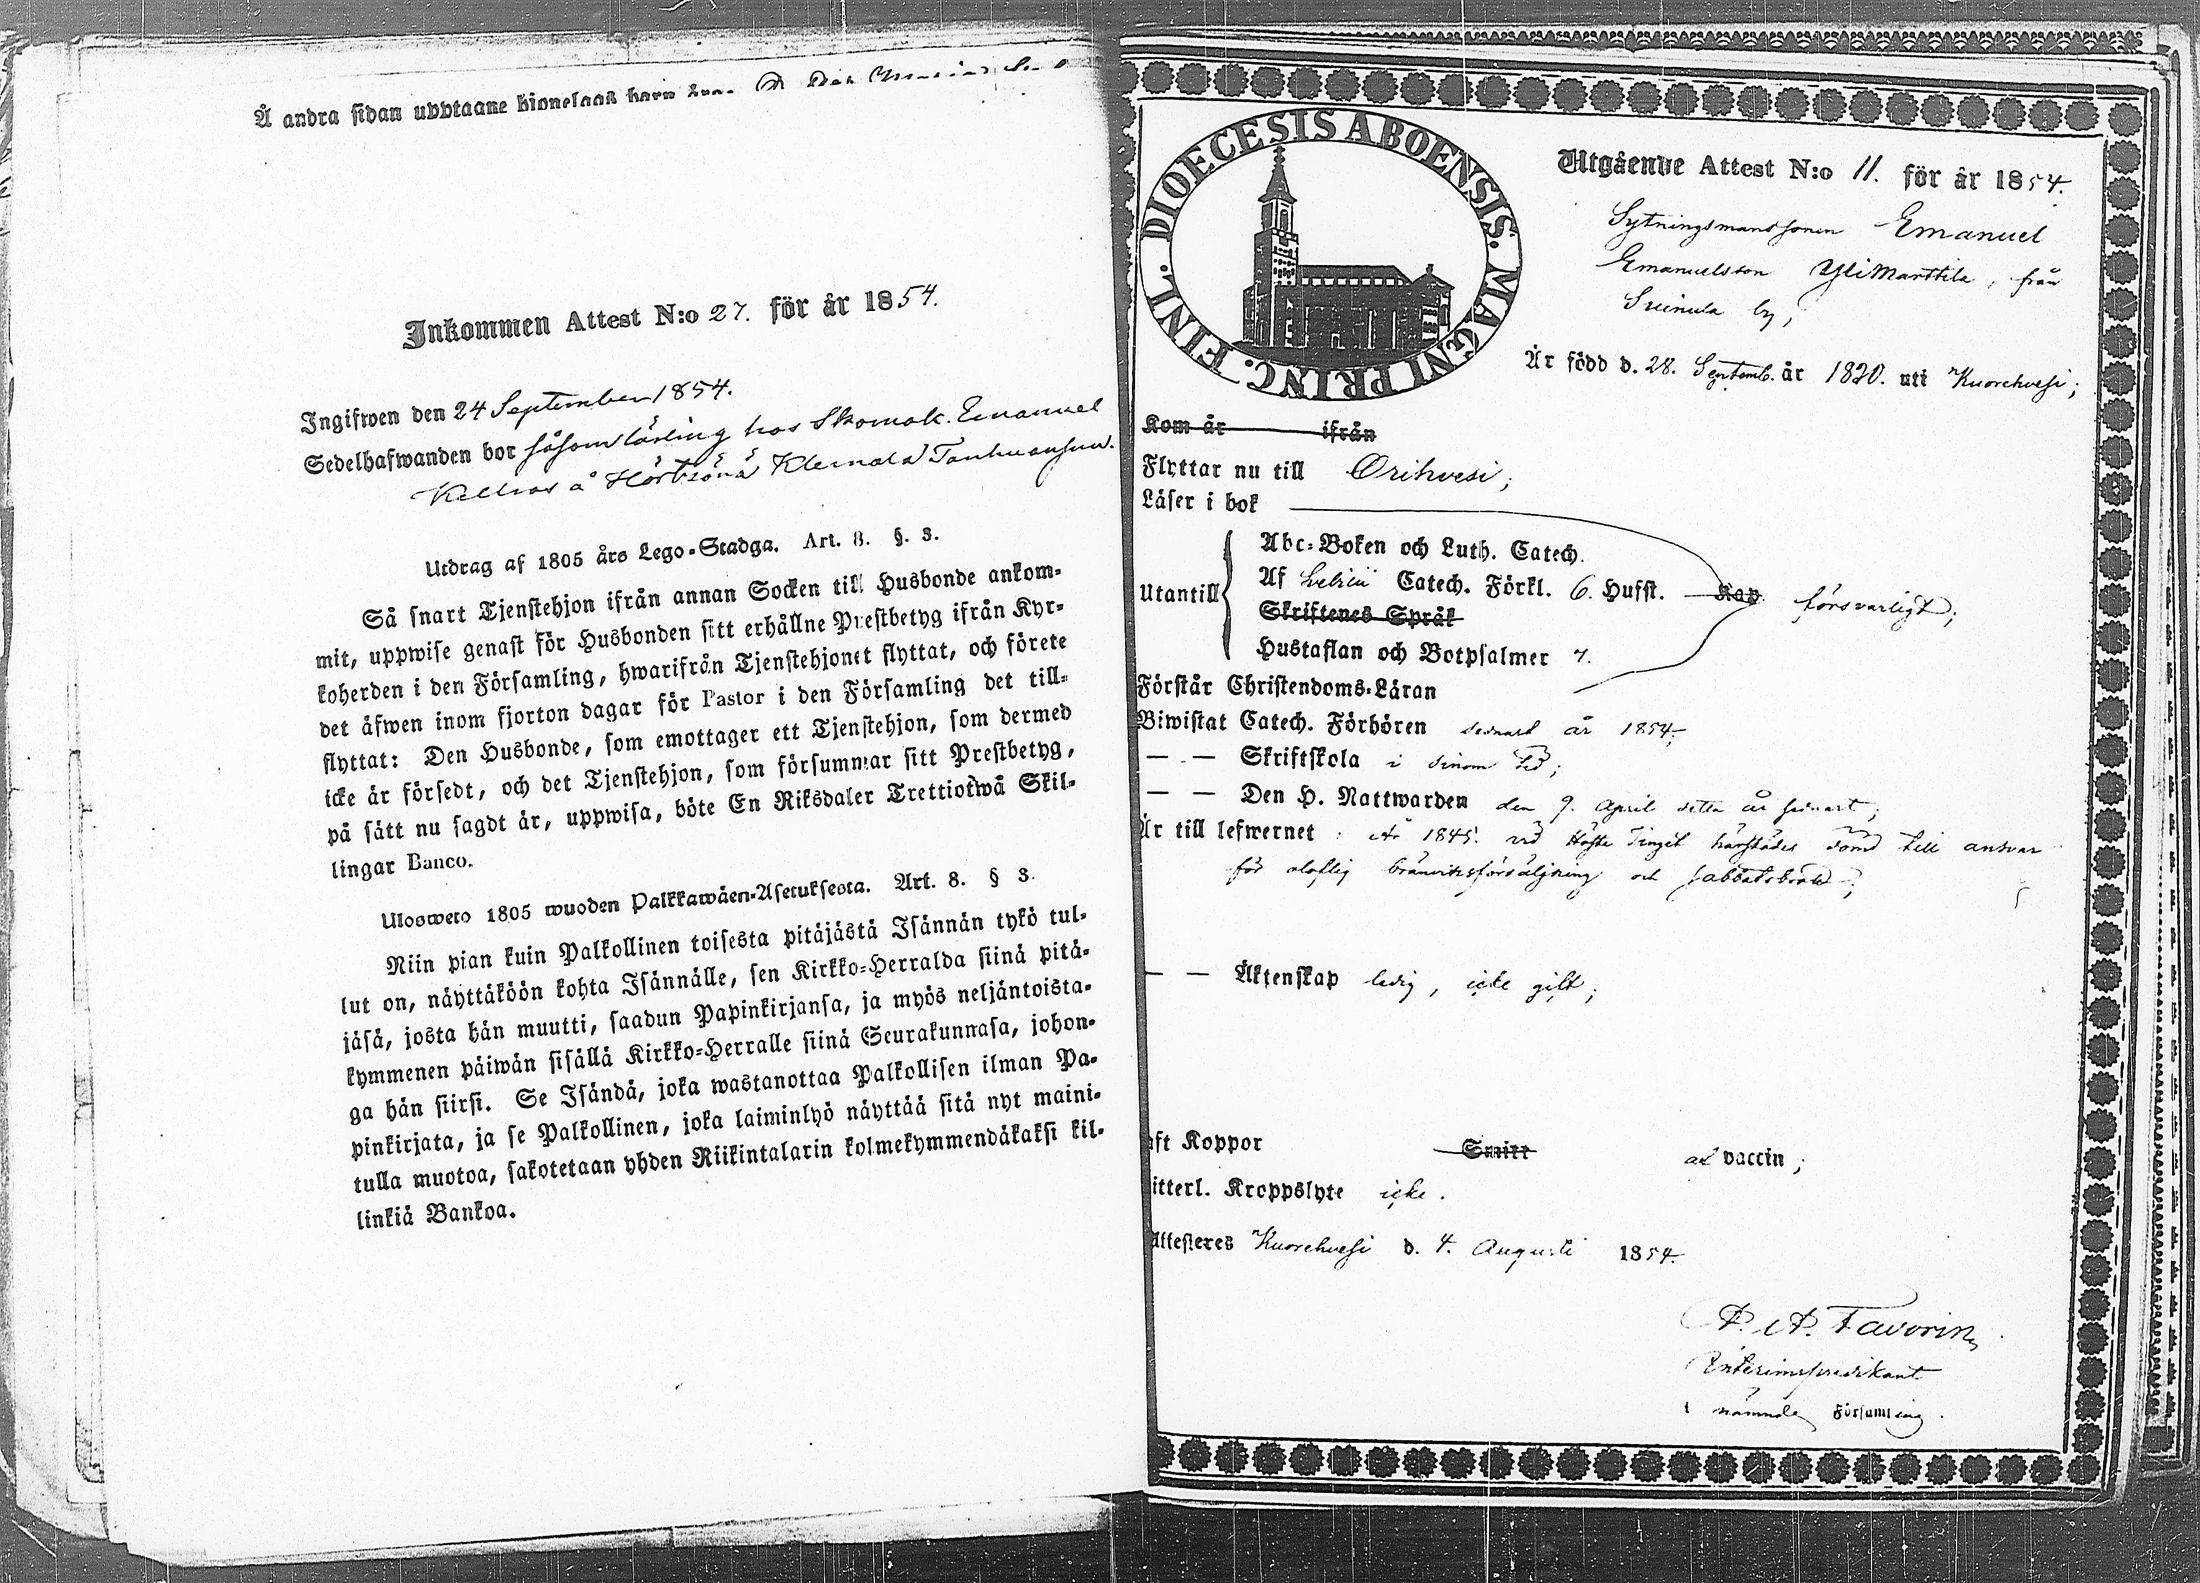 Å andra sidan upptagne hionelags barn äro:
Inkommen Attest N:o 27. för år 1854.
Ingifwen den 24 September 1854.
Sedelhafwanden bor såsom lärling hos Skomak. Emanuel
å
Utdrag af 1805 års Lego-Stadga. Art. 8. §. 3.
Så snart Tjenstehjon ifrån annan Socken till Husbonde ankom-
mit, uppwise genast för Husbonden sitt erhållne Prestbetyg ifrån Kyr-
koherden i den Församling, hwarifrån Tjenstehjonet flyttat, och förete
det äfwen inom fjorton dagar för Pastor i den Församling det till-
flyttat: Den Husbonde, som emottager ett Tjenstehjon, som dermed
icke är försedt, och det Tjenstehjon, som försummar sitt Prestbetyg,
på sätt nu sagdt är, uppwisa, böte En Riksdaler Trettiotwå Skil-
lingar Banco.
Ulosweto 1805 wuoden Palkkawäen-Asetuksesta. Art. 8. § 3.
Niin pian kuin Palkollinen toisesta pitäjästä Isännän tykö tul-
lut on, näyttäköön kohta Isännälle, sen Kirkko-Herralda siinä pitä-
jäsä, josta hän muutti, saadun Papinkirjansa, ja myös neljäntoista-
kymmenen päiwän sisällä Kirkko-Herralle siinä Seurakunnasa, johon-
ga hän siirsi. Se Isändä, joka wastanottaa Palkollisen ilman Pa-
pinkirjata, ja se Palkollinen, joka laiminlyö näyttää sitä nyt maini-
tulla muotoa, sakotetaan yhden Riikintalarin kolmekymmendäkaksi kil-
linkiä Bankoa.
DIOECESIS ABOENSIS. MAGNI PRINC. FINL.
Utgående Attest N:o 11. för år 1854.
Sytningsmansonen Emanuel
Emanuelsson Yli Marttila, från
Suinula by,
Är född d. 28. Septemb. år 1820. uti Kuorehvesi;
Kom år ifrån
Flyttar nu till Orihvesi;
Läser i bok
Abc-Boken och Luth. Catech.
Utantill Af Svebilii Catech. Förkl. 6. Hufst. Kap försvarligt;
Skriftenes Språk
Hustaflan och Botpsalmer 7.
Förstår Christendoms-Läran
Biwistat Catech. Förhören senast år 1854;
— — Skriftskola i sinom tid;
— — Den H. Nattwarden den 9. April detta år senast;
Är till lefwernet: År 1845. vid Höste Tinget härstädes dömd till ansvar
för oloflig bränvinsförsäljning och sabbatsbrott;
— — Äktenskap ledig, icke gift;
aft Koppor Smitt af vaccin;
itterl. Kroppslyte icke.
Attesteres Kuorehvesi d. 4. Augusti 1854.
A. Favorin,
Interimspredikant
i nämnde Församling.